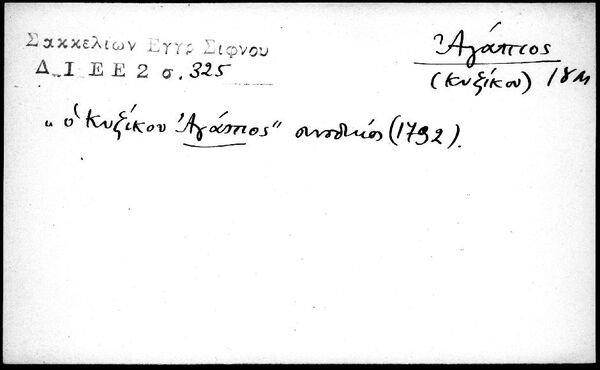 Σακκελίων Εγγρ Σιφνου
Δ.Ι Ε Ε 2 σ. 325
Ἀγάπιος
(Κυζίκου) 18Μ
„ ὁ Κυζίκου Ἀγάπιος" συνοδικός (1792).